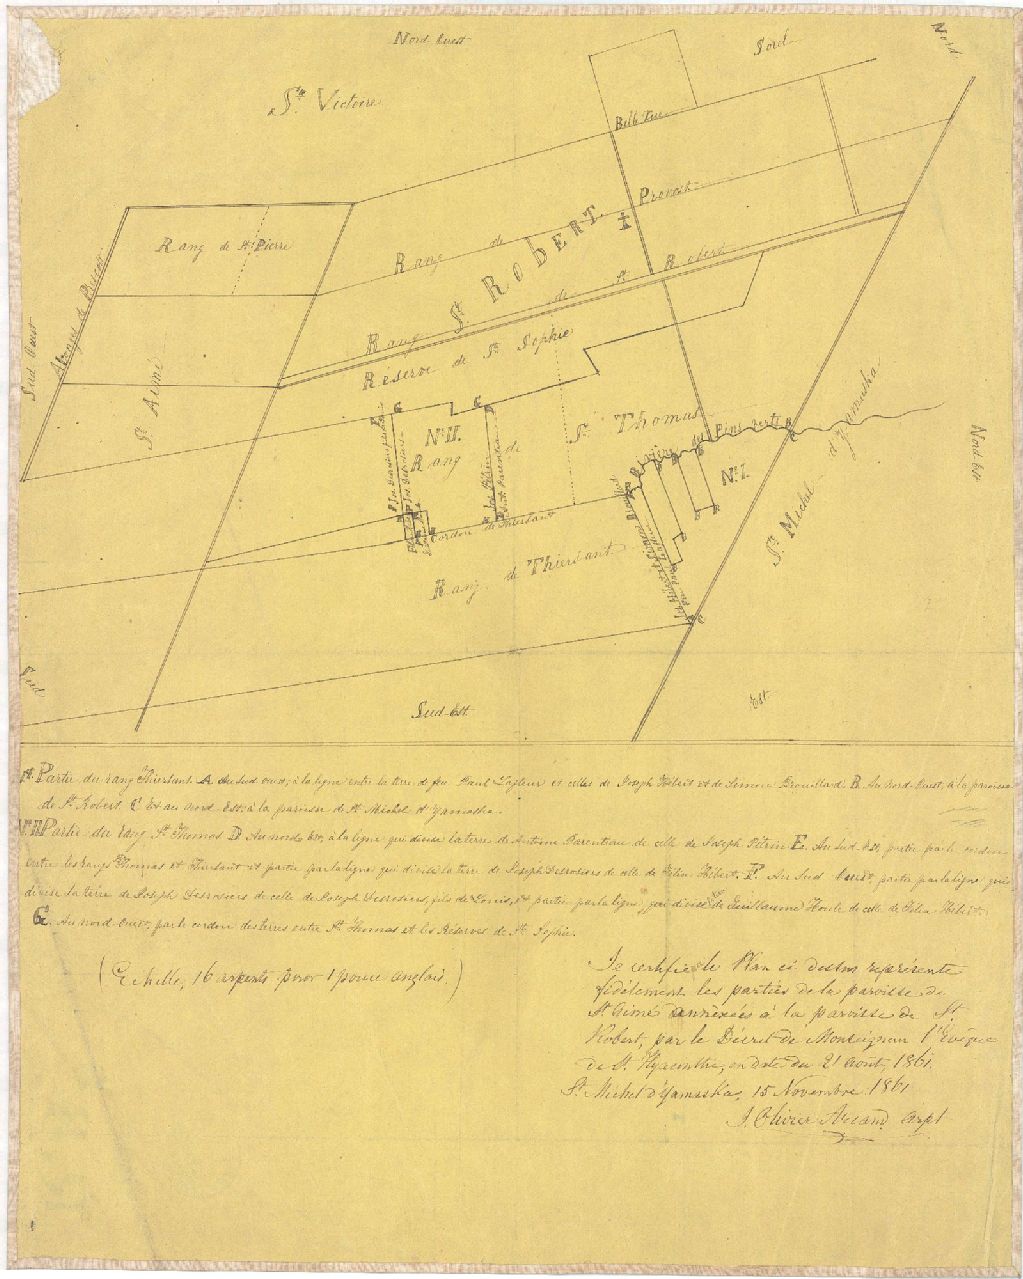 Nord Ouest
Sorel
Nord
Ste Victoire
Belle Vue
Rang de St Pierre
Rang de Provost
St ROBERT
Rang de St Robert
Réserve de Ste Sophie
Sud Ouest
St Aimé
No II.
Rang de St Thomas
Rivière des Pins verts
No I.
d'Yamaska
St Michel
Nord Est
Cordon de Thiersant
Rang de Thiersant
Sud
Sud Est
Est
Partie du rang Thiersant. A Au Sud Ouest, à la ligne entre la terre de feu Paul et celles de Joseph Hébert et de Simon Brouillard. B Au Nord Ouest, à la paroisse
de St Robert. C Et au Nord Est, à la paroisse de St Michel d'Yamaska.
No II Partie du rang St Thomas D Au nord Est, à la ligne qui divise la terre de Antoine Parenteau de celle de Joseph E. Au Sud Est, partie par le cordon
entre les rangs Thomas et Thiersant et partie par la ligne qui divise la terre de Joseph Desrosiers de celle de Hébert, F. Au Sud Ouest partie par la ligne qui
divise la terre de Joseph Desrosiers de celle de Joseph Desrosiers, fils de Louis, et partie par la ligne qui divise de Guillaume Houle de celle de Hébert.
G. Au nord Ouest, par le cordon des terres entre St Thomas et les Réserves de Ste Sophie.
(Echelle, 16 arpents pour 1 pouce anglais.)
Je certifie le Plan ci dessus représente
fidèlement les parties de la paroisse de
St Aimé annexées à la paroisse de St
Robert, par le Décret de Monseigneur l'Evêque
de St Hyacinthe, en date du 21 Août, 1861.
St Michel d'Yamaska, 15 Novembre 1861
J. Olivier Arcand Arpt